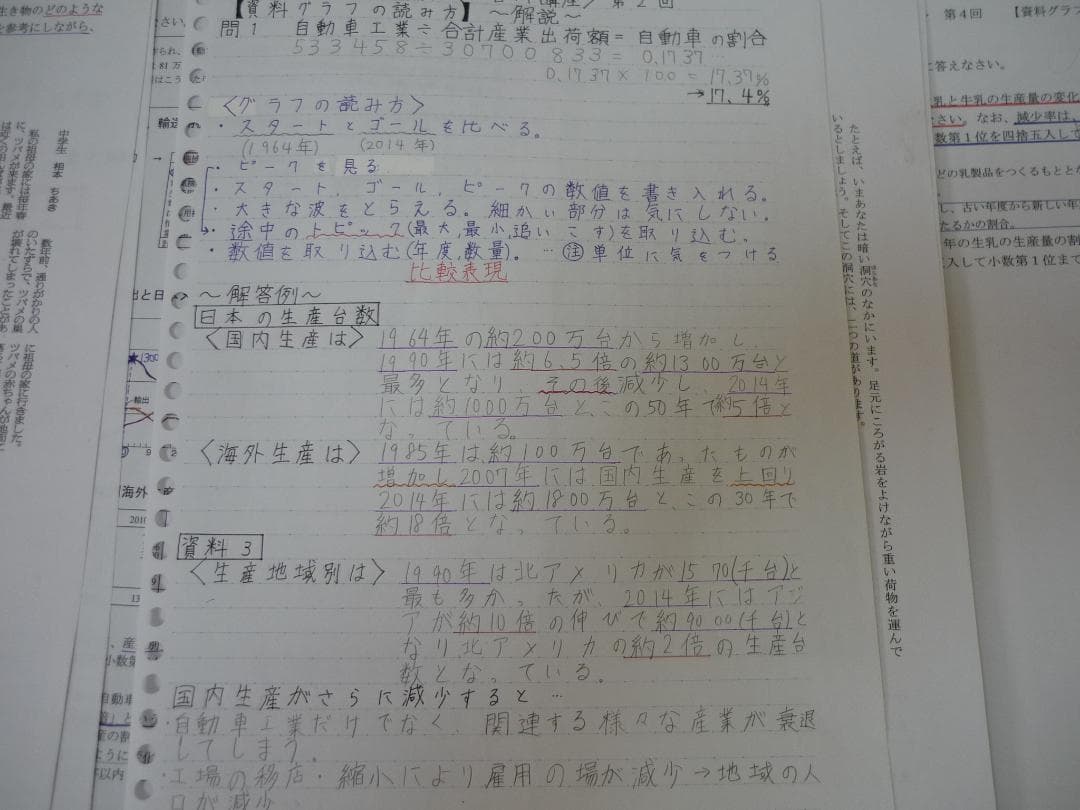 【資料グラフの読み方】
～解説～
第2回
問1 自動車工業÷合計産業出荷額=自動車の割合
533458÷30700833=0.1737
0.1737×100=17.37%
→17.4%
〈グラフの読み方〉
・スタートとゴールを比べる。
(1964年) (2014年)
・ピークを見る
・スタート、ゴール、ピークの数値を書き入れる。
・大きな波をとらえる。細かい部分は気にしない。
・途中のトピック(最大,最小,追いこす)を取り込む。
・数値を取り込む(年度,数量)。…注単位に気をつける
比較表現
～解答例～
日本の生産台数
〈国内生産は〉1964年の約200万台から増加し、
1990年には約6.5倍の約1300万台と
最多となり、その後減少し、2014年
には約1000万台と、この50年で約5倍と
なっている。
〈海外生産は〉1985年は、約100万台であったものが
増加し2007年には国内生産を上回り
2014年には約1800万台と、この30年で
約18倍となっている。
資料3
〈生産地域別は〉1990年は北アメリカが1570(千台)と
最も多かったが、2014年にはアジ
アが約10倍の伸びで約9000(千台)と
なり北アメリカの約2倍の生産台
数となっている。
国内生産がさらに減少すると…
・自動車工業だけでなく、関連する様々な産業が衰退
してしまう。
・工場の移店・縮小により雇用の場が減少→地域の人
口が減少
たとえば、いまあなたは暗い洞穴のなかにいます。足元にころがる岩をよけながら重い荷物を運んで
いるとしましょう。そしてこの洞穴には、二つの道があります。
第4回 【資料グラフ
に答えなさい。
乳と生乳の生産量の変化
さい。なお、減少率は、
数第1位を四捨五入して
どの乳製品をつくるもととな
し、古い年度から新しい年
たるかの割合。
年の生乳の生産量の割
五入して小数第1位まで
生き物のどのような
を参考にしながら、
中学生 相本 ちあき
私の祖母の家には毎年春
に、ツバメが来ます。最近
数年前、通りがかりの人
のいたずらで、ツバメの巣
が壊れてしまったことがあ
に祖母の家に行きました。
1300
輸出
海外